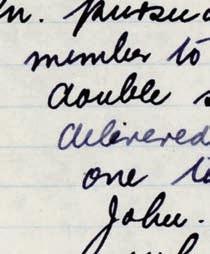 n. pursu
member to
double s
delivered
one t
John.